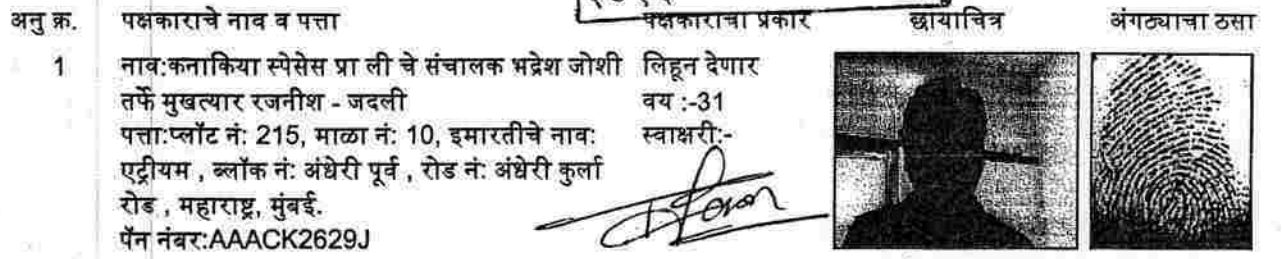 अनु क्र. पक्षकाराचे नाव व पत्ता पक्षकाराचा प्रकार छायाचित्र अंगठ्याचा ठसा
1 नाव:कनाकिया स्पेसेस प्रा ली चे संचालक भद्रेश जोशी लिहून देणार
तर्फे मुखत्यार रजनीश - जदली वय :-31
पत्ता:प्लॉट नं: 215, माळा नं: 10, इमारतीचे नाव: स्वाक्षरी:-
एट्रीयम , ब्लॉक नं: अंधेरी पूर्व , रोड नं: अंधेरी कुर्ला
रोड , महाराष्ट्र, मुंबई.
पॅन नंबर:AAACK2629J